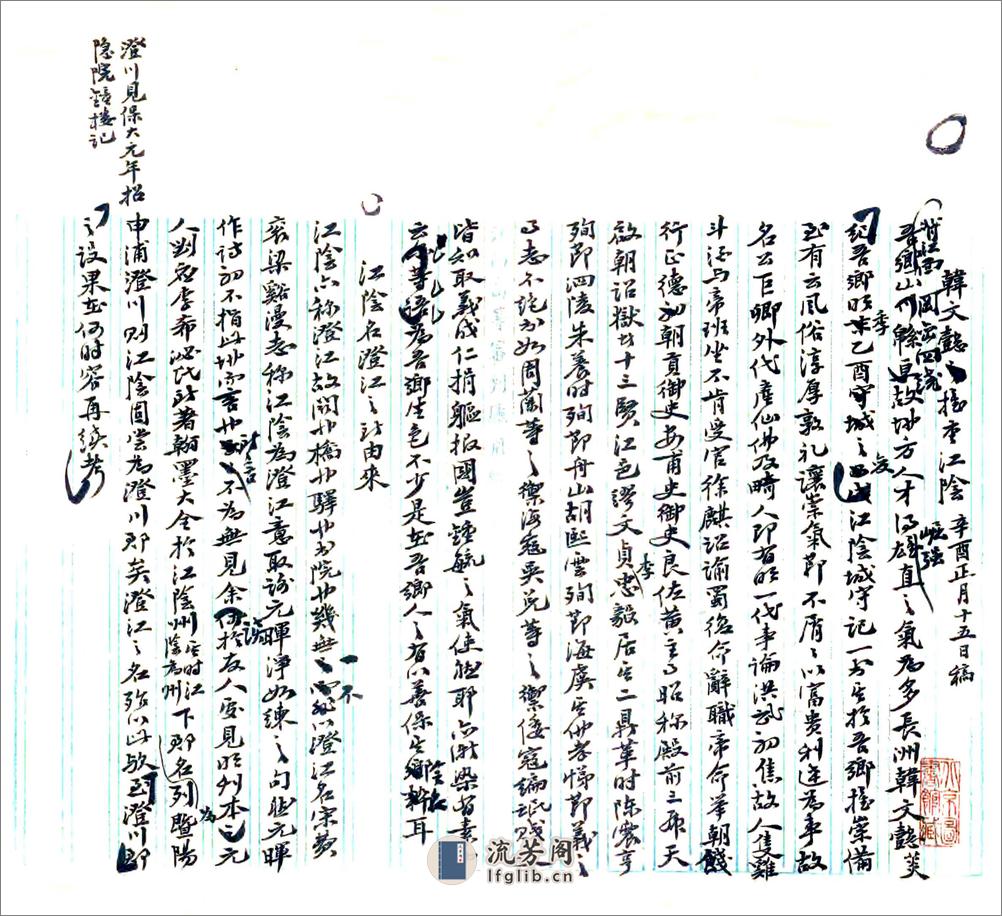 韓文懿之推重江陰 辛酉正月十五日稿
吾鄉山川 故地方人才得雄直之氣為多長洲韓文懿菼
紀吾鄉明季乙酉守城之江陰城守記一書其於吾鄉推崇備
至有云風俗淳厚敦禮讓崇氣節不屑以富貴利達為事故
名公巨卿外代產仙佛及畸人即有明一代事論洪武初焦故人隻雞
斗酒與帝班坐不肯受官徐麒詔諭蜀後命辭職帝命舉朝餞
行正德初朝貢御史安甫史御史良佐黃主事昭稱殿前三虎天
啟朝詔獄 十三賢江邑繆文貞李忠毅居其二鼎革時陳震亨
殉節泗陵朱養時殉節舟山胡熙雲殉節海虞其他孝悌節義之
事志不絕書如周蘭等之禦海寇吳兌等之禦倭寇編氓賤
皆知取義成仁捐軀報國豈鍾毓之氣使然耶亦漸染者素
云云此等語為吾鄉生色不少是在吾鄉人之有以善保其粹耳
江陰名澄江之所由來
江陰亦稱澄江故閘也橋也驛也書院也幾無一不以澄江名宋費
袞梁谿漫志稱江陰為澄江意取謝元暉淨如練之句然元暉
作詩初不指此地而言也所言不為無見余於友人處見明刊本之元
人劉應李希泌氏所著翰墨大全於江陰州元時江陰為州下郡名列暨陽
申浦澄川則江陰固嘗為澄川郡矣澄江之名殆以此歟至澄川郡
之設果在何時容再續考
澄川見保大元年招
隱院鐘樓記
流芳阁
lfglib.cn